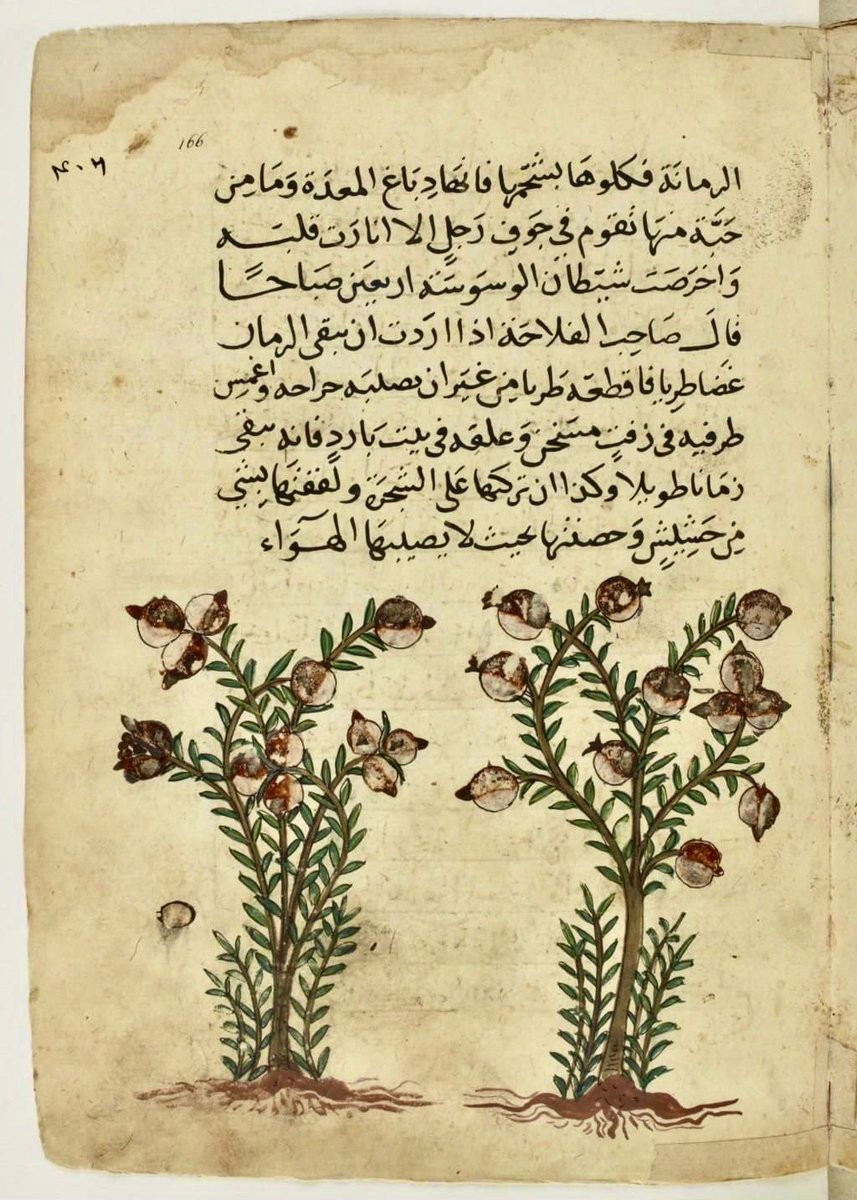 166
الرمانة فكلوها بشحمها فانها دباغ المعدة وما من
حبة منها تقوم في جوف رجل الا انارت قلبه
واخرست شيطان الوسوسة اربعين صباحا
قال صاحب الفلاحة اذا اردت ان يبقى الرمان
غضا طريا فاقطعه طريا من غير ان يصيبه جراحه واغمس
طرفيه في زفت مسخن وعلقه في بيت بارد فانه يبقى
زمانا طويلا وكذا ان تركتها على الشجرة ولففتها بشئ
من حشيش وحصنتها بحيث لا يصيبها الهوآء